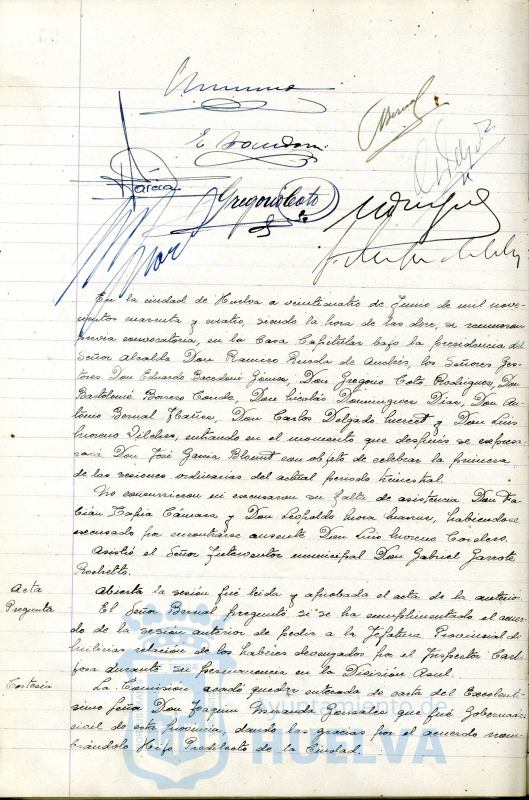 E. Bacedoni
Bernal
García
Gregorio Coto
En la ciudad de Huelva a veinticuatro de Junio de mil nove-
cientos cuarenta y cuatro, siendo la hora de las doce, se reunieron
previa convocatoria, en la Casa Capitular bajo la presidencia del
Señor alcalde Don Ramiro Rueda de Andrés, los Señores Ges-
tores Don Eduardo Bacedoni Gómez, Don Gregorio Coto Rodriguez, Don
Bartolomé Borrero Conde, Don Nicolás Dominguez Diaz, Don An-
tonio Bernal Ibañez, Don Carlos Delgado y Don Luis
Moreno Vilches, entrando en el momento que después se expre-
sará Don José Garcia con objeto de celebrar la primera
de las sesiones ordinarias del actual periodo trimestral.
No concurrieron ni excusaron su falta de asistencia Don Fa-
bián Tapia Cámara y Don Leopoldo Mora, habiéndose
excusado por encontrarse ausente Don Luis Moreno Cordero.
Asistió el Señor Interventor municipal Don Gabriel Garrote
Rochetto.
Acta
Abierta la sesión fué leida y aprobada el acta de la anterior.
Pregunta
El Señor Bernal pregunta si se ha cumplimentado el acuer-
do de la sesion anterior de pedir a la Jefatura Provincial de
milicias relación de los haberes devengados por el Inspector
durante su permanencia en la División Azul.
Cortesía
La Comisión acordó quedar enterada de carta del Excelen-
tisimo Señor Don Joaquin Miranda Gonzalez que fué Gobernador
civil de esta provincia, dando las gracias por el acuerdo nom-
brándolo Hijo Predilecto de la Ciudad.
ayuntamiento de
HUELVA